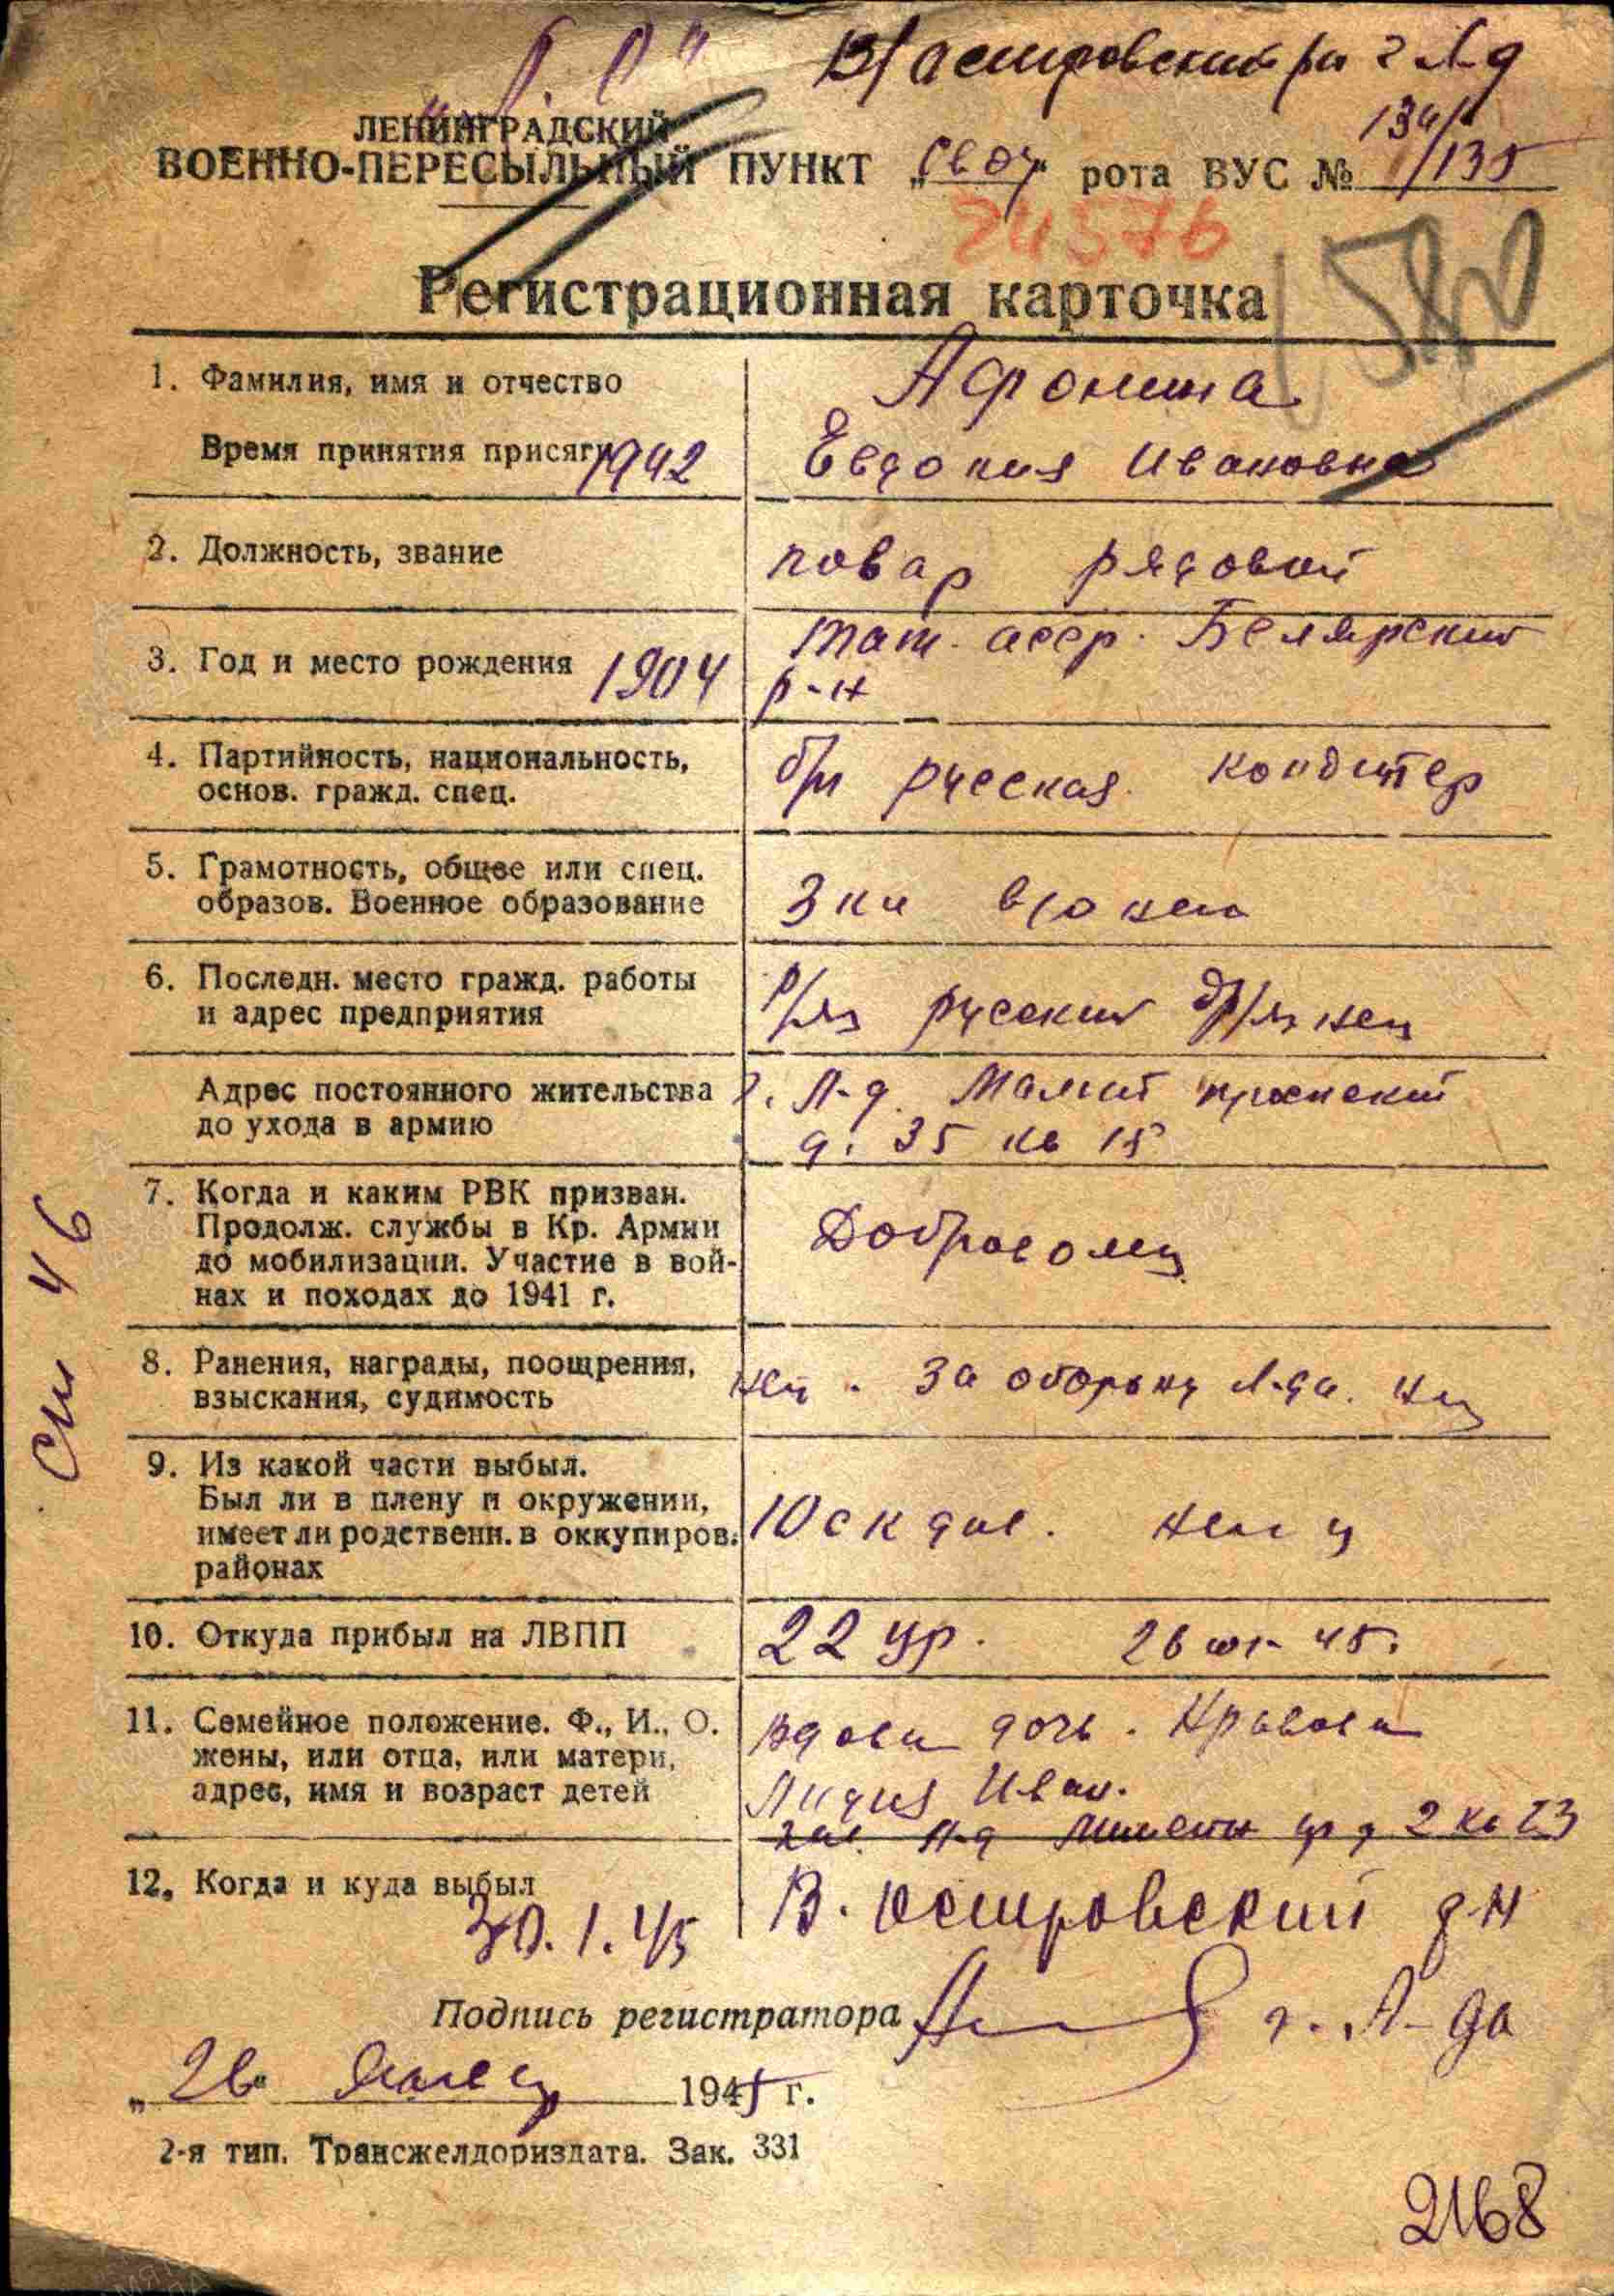 В/Островский р-н г. Л-д
ЛЕНИНГРАДСКИЙ
ВОЕННО-ПЕРЕСЫЛЬНЫЙ ПУНКТ рота ВУС № 134/135
24576
Регистрационная карточка
1. Фамилия, имя и отчество Афонина
Время принятия присяги 1942 Евдокия Ивановна
2. Должность, звание повар рядовой
3. Год и место рождения 1904 Тат. асср. Белярский
р-н
4. Партийность, национальность,
основ. гражд. спец. б/п русская кондитер
5. Грамотность, общее или спец.
образов. Военное образование 3 кл в/о нет
6. Последн. место гражд. работы
и адрес предприятия р/яз русский др/яз нет
Адрес постоянного жительства г. Л-д. Малый проспект
до ухода в армию д. 35 кв 15
7. Когда и каким РВК призван.
Продолж. службы в Кр. Армии
до мобилизации. Участие в вой-
нах и походах до 1941 г. Доброволец
8. Ранения, награды, поощрения,
взыскания, судимость нет. За оборону Л-да. нет
9. Из какой части выбыл.
Был ли в плену и окружении,
имеет ли родственн. в оккупиров.
районах нет
10. Откуда прибыл на ЛВПП 22 ур. 45.
11. Семейное положение. Ф., И., О.
жены, или отца, или матери,
адрес, имя и возраст детей
вдова дочь.
Лидия Иван.
Л-д 2 кв 23
12. Когда и куда выбыл 30.1.45 В. Островский р-н
Подпись регистратора г. Л-да
„26“ января 1945 г.
2-я тип. Трансжелдориздата. Зак. 331
2168
см 46